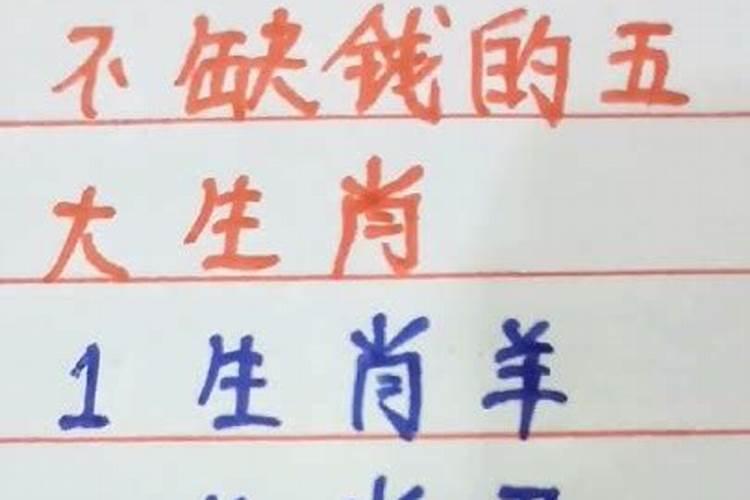 不缺钱的五
大生肖
1生肖羊